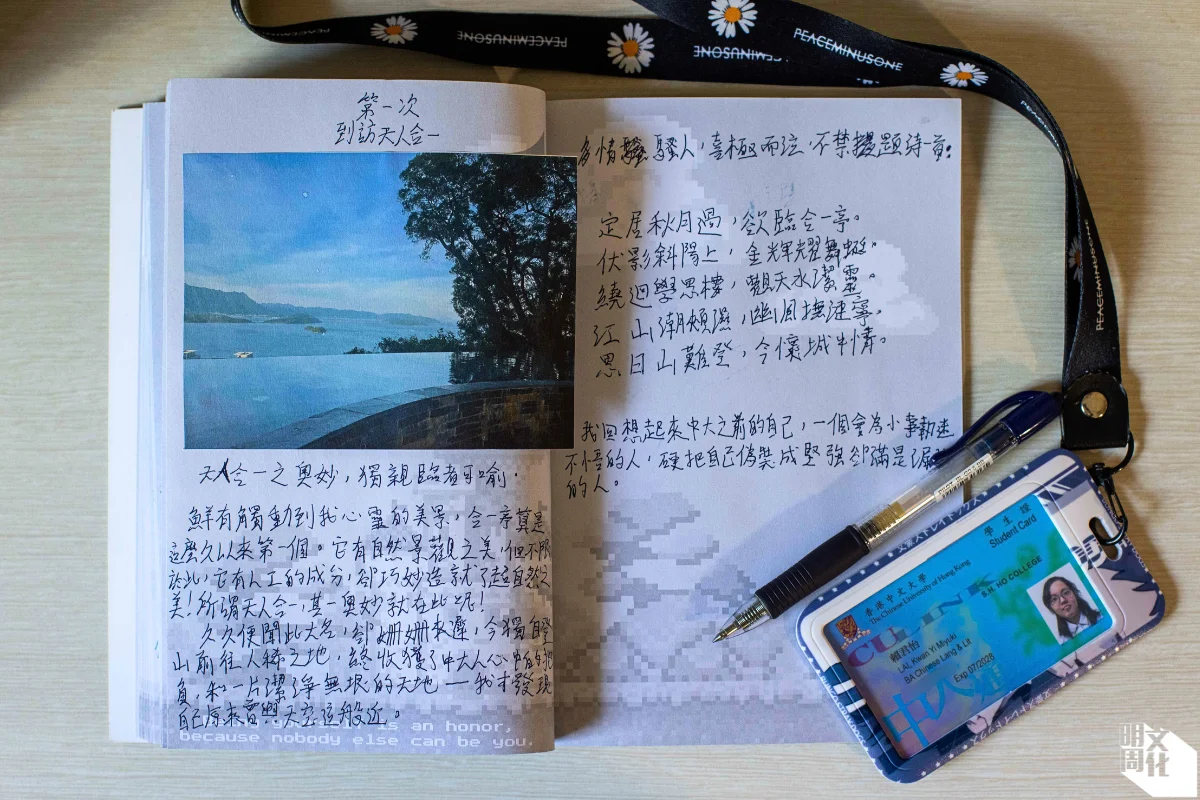 PEACEMINUSONE
PEACEMINUSONE
PEACEMINUSONE
PEACEMINUSONE
PEACEMINUSONE
第一次
到訪天人合一
天人合一之奧妙，獨親臨者可喻。
鮮有觸動到我心靈的美景，合一亭算是
這麼久以來第一個。它有自然景觀之美，但不限
於此，它有人工的成分，卻巧妙造就了超自然之
美！所謂天人合一，其奧妙就在此呢！
久久俟聞此大名，卻姍姍來遲，今獨自登
山前往人稀之地，終收獲了中大人心中的
和一片潔淨無垠的天地 — 我才發現
自己原來會與天空這般近。
is an honor,
because nobody else can be you.
多情騷人，喜極而泣，不禁題詩一首：
定居秋月過，欲臨合一亭。
伏影斜陽上，金輝耀舞蜓。
繞迴學思樓，觀天水潔靈。
江山潮頻濕，幽風撫漣寧。
思日山難登，今懷城半情。
我回想起來中大之前的自己，一個會為小事執迷
不悟的人，硬把自己偽裝成堅強卻滿是
的人。
學生證
Student Card
香港中文大學
The Chinese University of Hong Kong
S.H. HO COLLEGE
CUHK
賴君怡
LAI, Kwan Yi Miyuki
BA Chinese Lang & Lit
Exp 07/2028
中大
明周文化